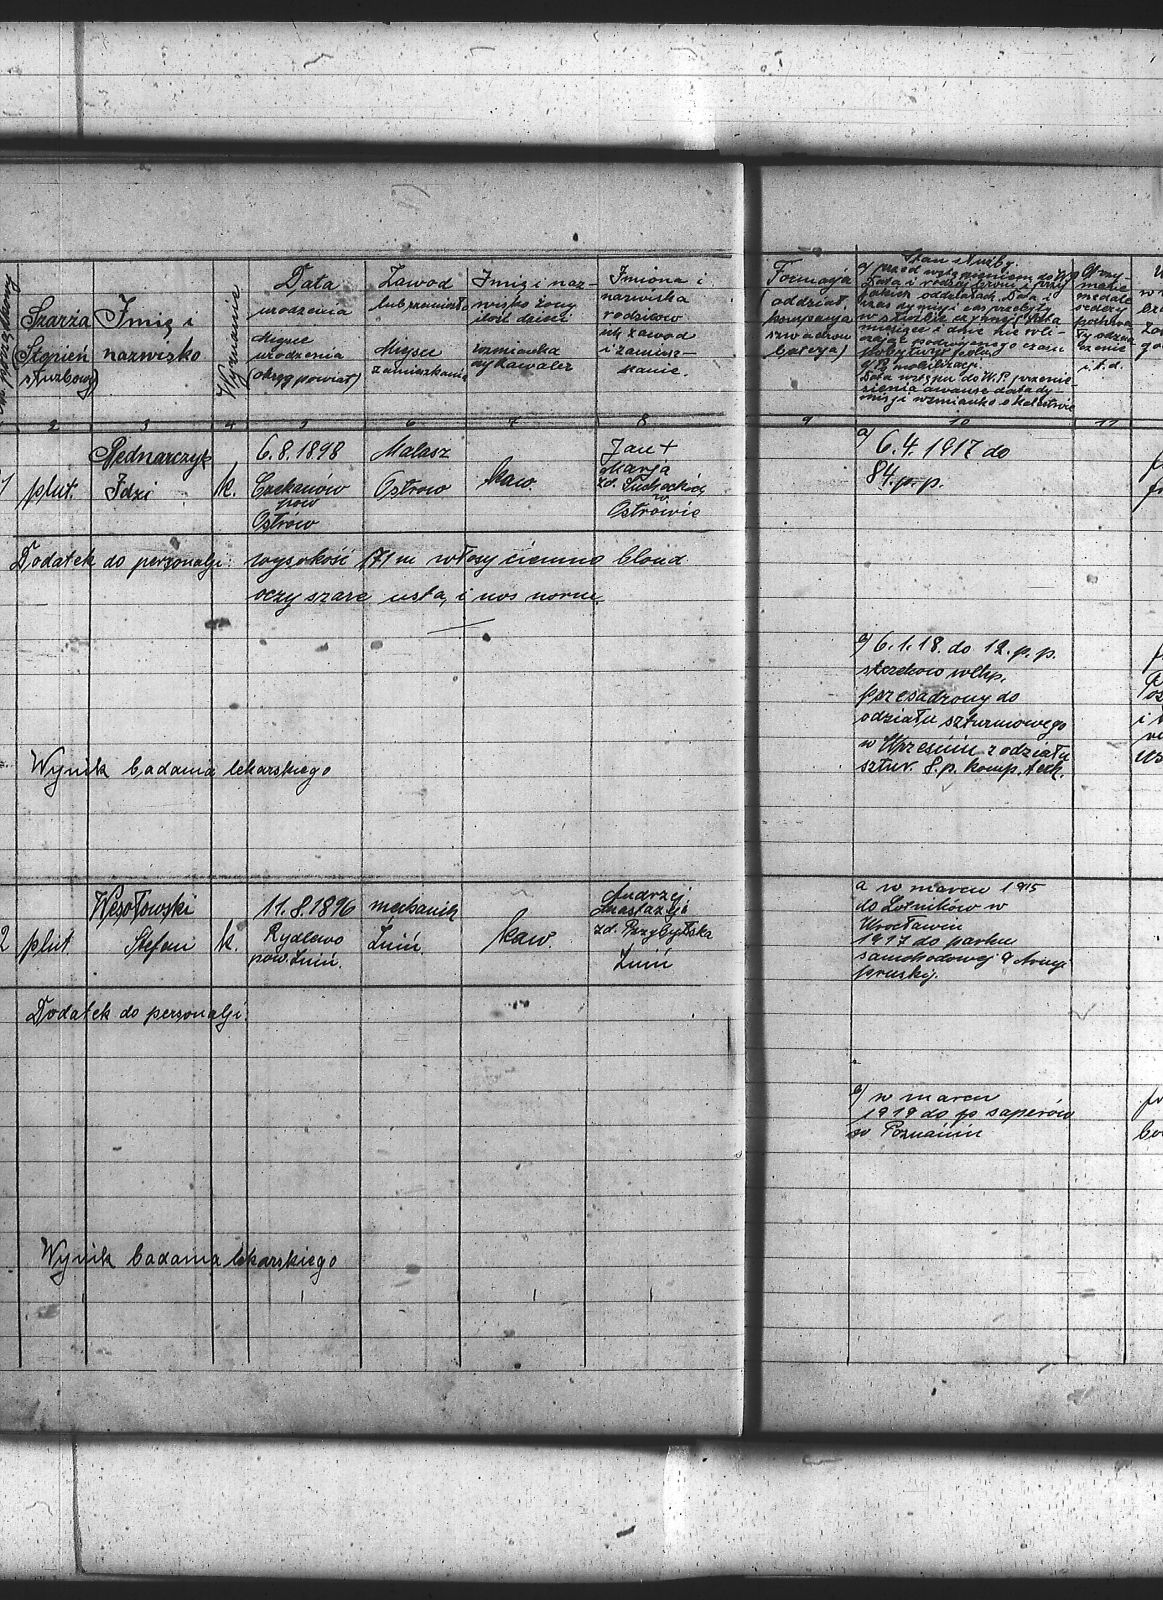 Szarża
(Stopień
służbowy)
Imię i
nazwisko
Wyznanie
Data
urodzenia
Miejsce
urodzenia
(okręg powiat)
Zawód
lub rzemiosło
Miejsce
zamieszkania
Imię i naz-
wisko żony
ilość dzieci
wzmianka
czy kawaler
Imiona i
nazwiska
rodziców
ich zawód
i zamiesz-
kanie.
2 3 4 5 6 7 8
1 plut.
Bednarczyk
Idzi
k.
6.8.1898
Czekanów
pow
Ostrów
Malarz
Ostrów
kaw.
Jan +
Marja
zd. Suchockich
w
Ostrowie
Dodatek do personalji: wysokość 171 m włosy ciemno blond
oczy szare usta, i nos norm.
Wynik badania lekarskiego
2 plut.
Wesołowski
Stefan
k.
11.8.1896
Rydlewo
pow. Żnin.
mechanik
Żnin.
kaw.
Andrzej
Anastazja
zd. Przybylska
Żnin
Dodatek do personalji.
Wynik badania lekarskiego
Formacja
(oddział
kompanja
szwadron
baterja)
Stan służby.
a) przed wstąpieniem do W.P.
Data i rodzaj broni i przy
jakich oddziałach. Data i
b) Po mobilizacji.
Data wstępu do W.P. przenie-
sienia awanse data dy-
misji wzmianka o
i.t.d.
9 10 11
a) 6.4.1917 do
84.p.p.
b) 6.1.18. do 12.p.p.
strzelców wlkp.
przesadzony do
odziału szturmowego
w Wrześniu z odziału
sztur. 8.p. komp. tech.
a w marcu 1915
do Lotników w
Wrocławiu
1917 do parku
samohodowej 9 Armji
pruskij.
b) w marcu
1919 do 1p saperów
w Poznaniu